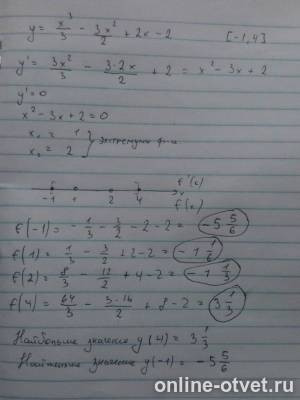 y = x³/3 - 3x²/2 + 2x - 2 [-1, 4]
y' = 3x²/3 - 3·2x/2 + 2 = x² - 3x + 2
y' = 0
x² - 3x + 2 = 0
x₁ = 1
x₂ = 2 } экстремум ф-и
f'(x)
-1 1 2 4 x
f(x)
f(-1) = -1/3 - 3/2 - 2 - 2 = -5 5/6
f(1) = 1/3 - 3/2 + 2 - 2 = -1 1/6
f(2) = 8/3 - 12/2 + 4 - 2 = -1 1/3
f(4) = 64/3 - 3·16/2 + 8 - 2 = 3 1/3
Наибольшее значение y(4) = 3 1/3
Наименьшее значение y(-1) = -5 5/6
online-otvet.ru